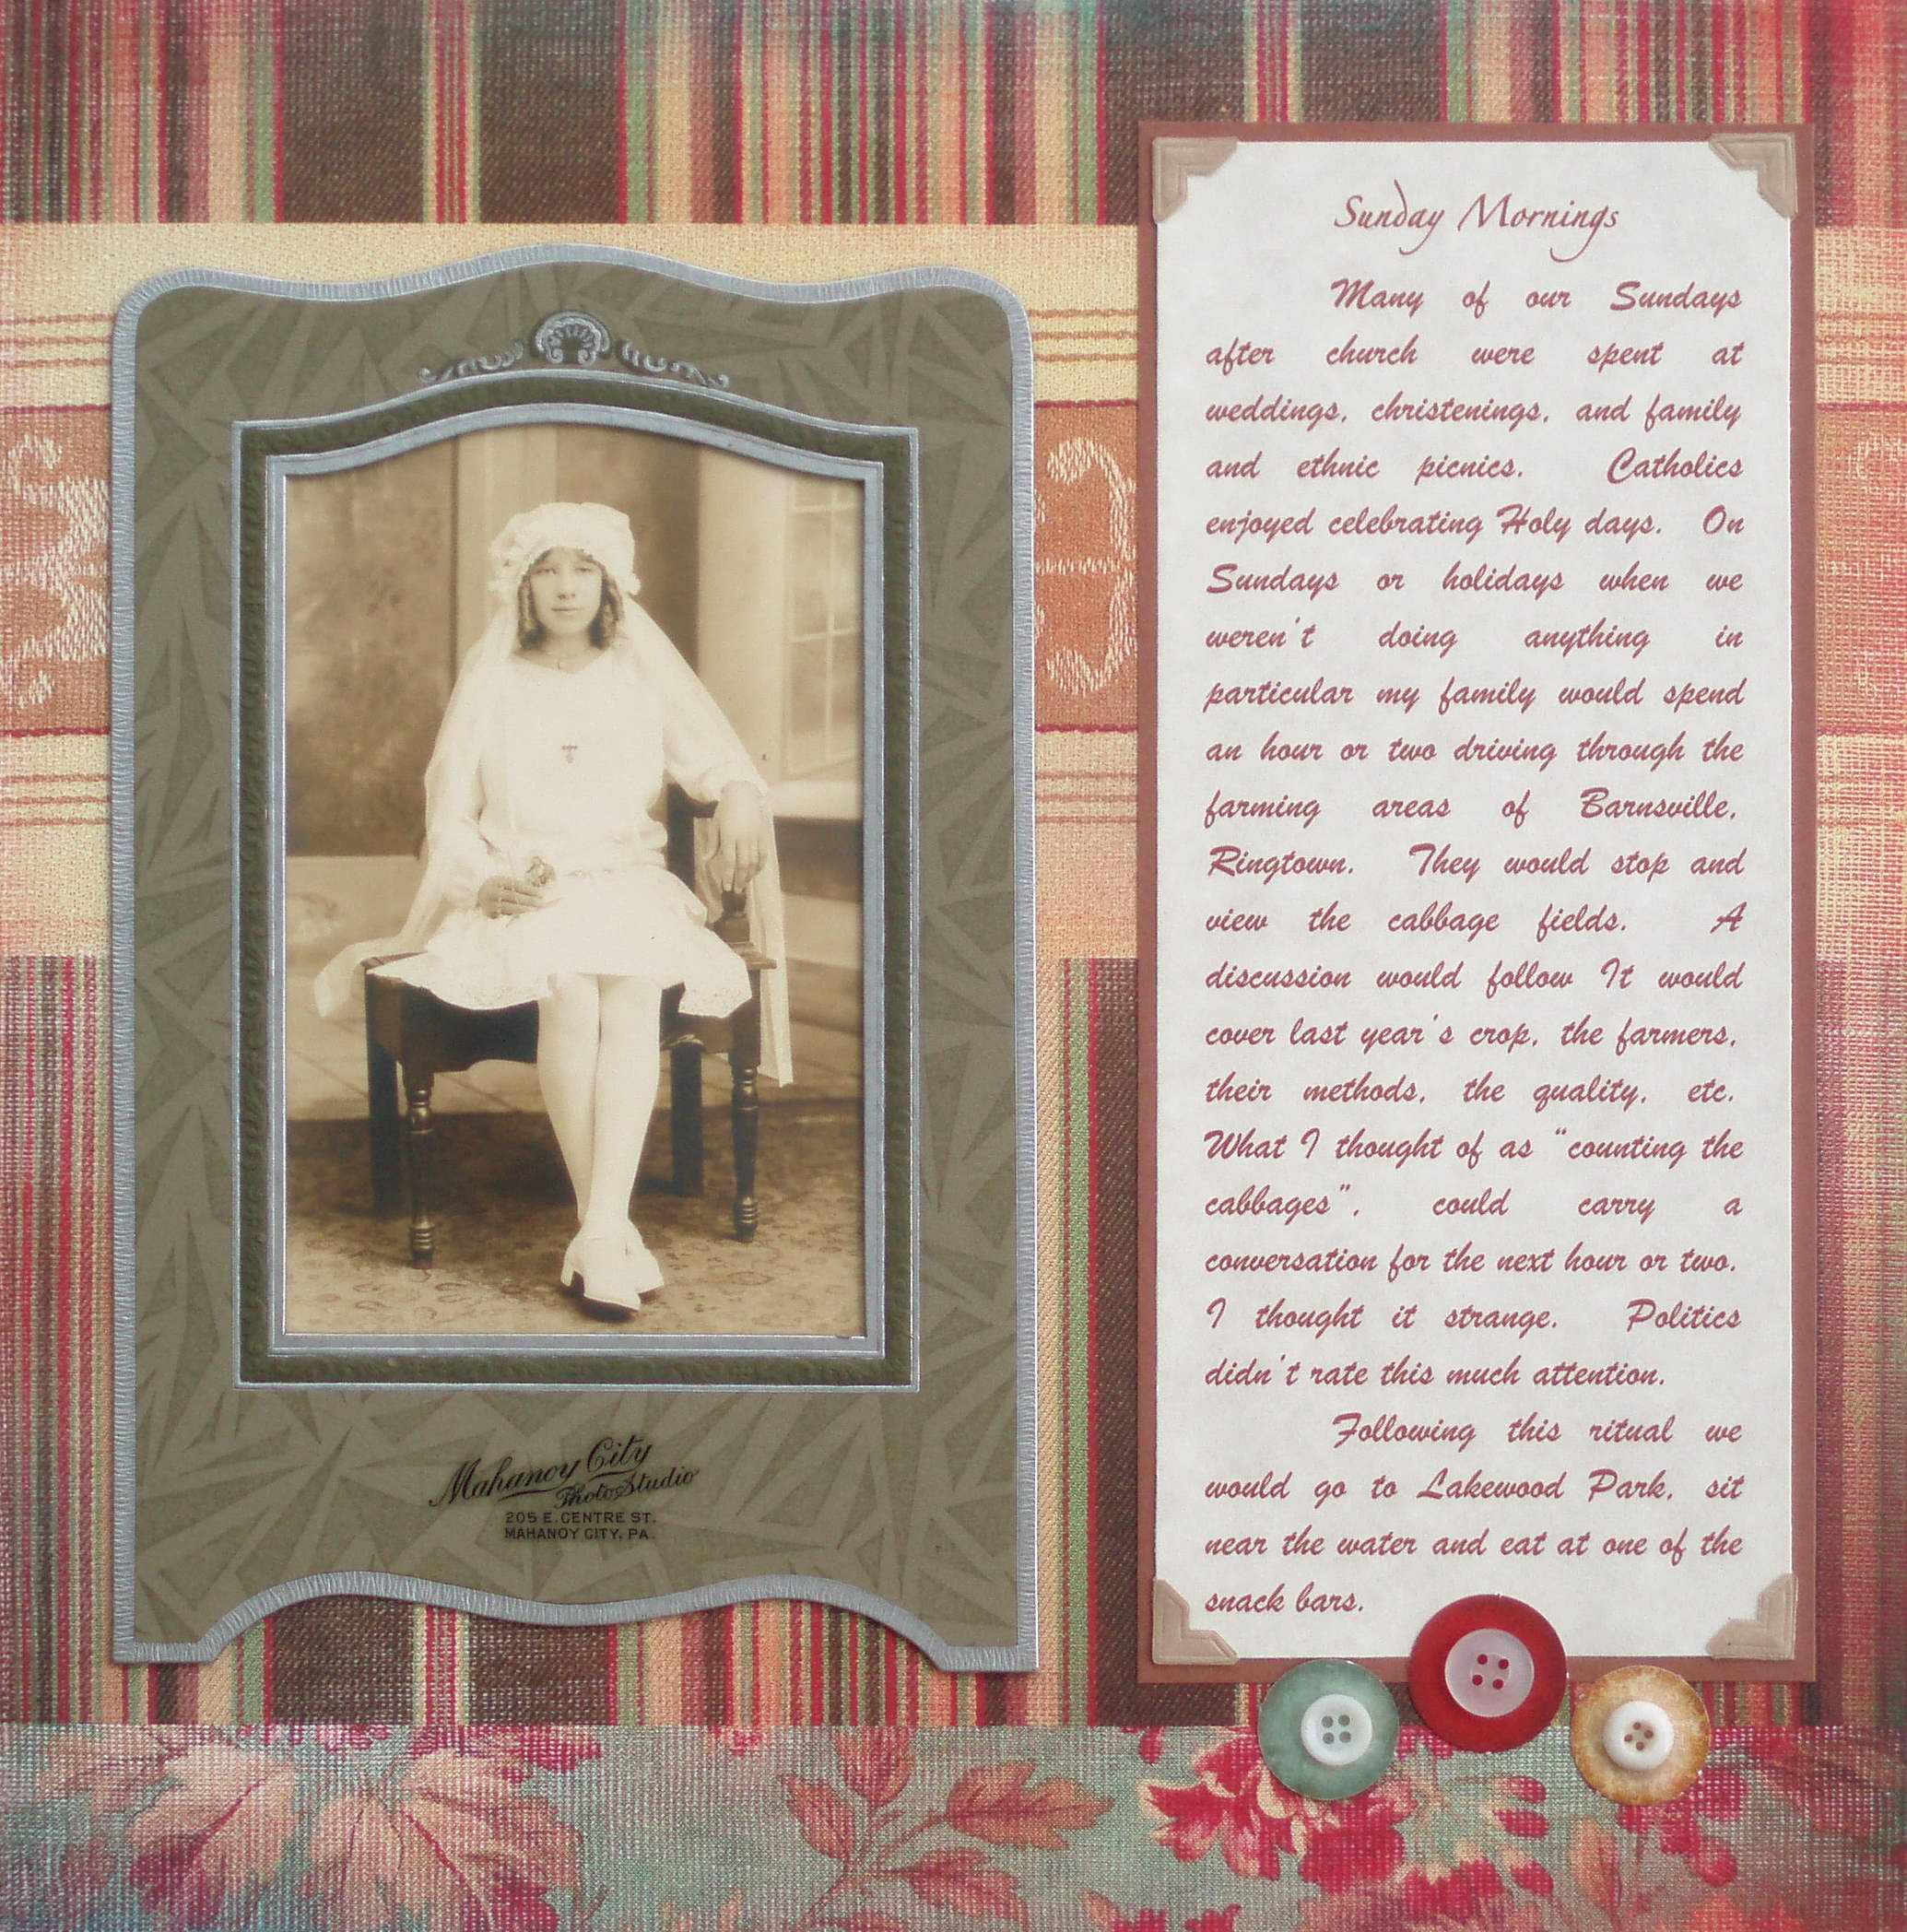 Sunday Mornings
Many of our Sundays
after church were spent at
weddings, christenings, and family
and ethnic picnics. Catholics
enjoyed celebrating Holy days. On
Sundays or holidays when we
weren't doing anything in
particular my family would spend
an hour or two driving through the
farming areas of Barnsville,
Ringtown. They would stop and
view the cabbage fields. A
discussion would follow It would
cover last year's crop, the farmers,
their methods, the quality, etc.
What I thought of as "counting the
cabbages", could carry a
conversation for the next hour or two.
I thought it strange. Politics
didn't rate this much attention.
Following this ritual we
would go to Lakewood Park, sit
near the water and eat at one of the
snack bars.
Mahanoy City
Photo Studio
205 E. CENTRE ST.
MAHANOY CITY, PA.